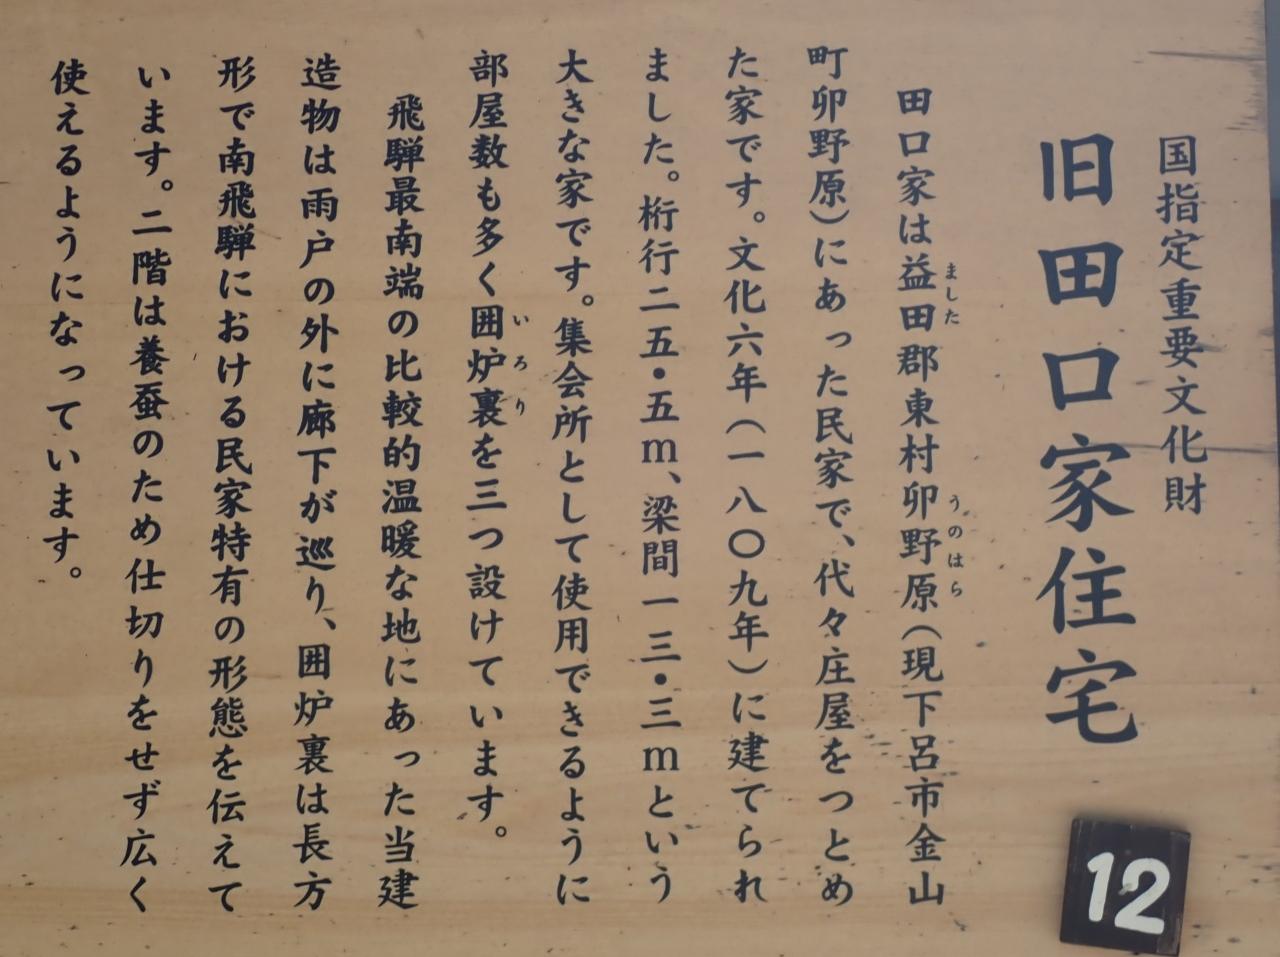 国指定重要文化財
旧田口家住宅
田口家は益田郡東村卯野原(現下呂市金山
ました
うのはら
町卯野原)にあった民家で、代々庄屋をつとめ
た家です。文化六年(一八〇九年)に建てられ
ました。桁行二五・五m、梁間一三・三mという
大きな家です。集会所として使用できるように
部屋数も多く囲炉裏を三つ設けています。
いろり
飛騨最南端の比較的温暖な地にあった当建
造物は雨戸の外に廊下が巡り、囲炉裏は長方
形で南飛騨における民家特有の形態を伝えて
います。二階は養蚕のため仕切りをせず広く
使えるようになっています。
12